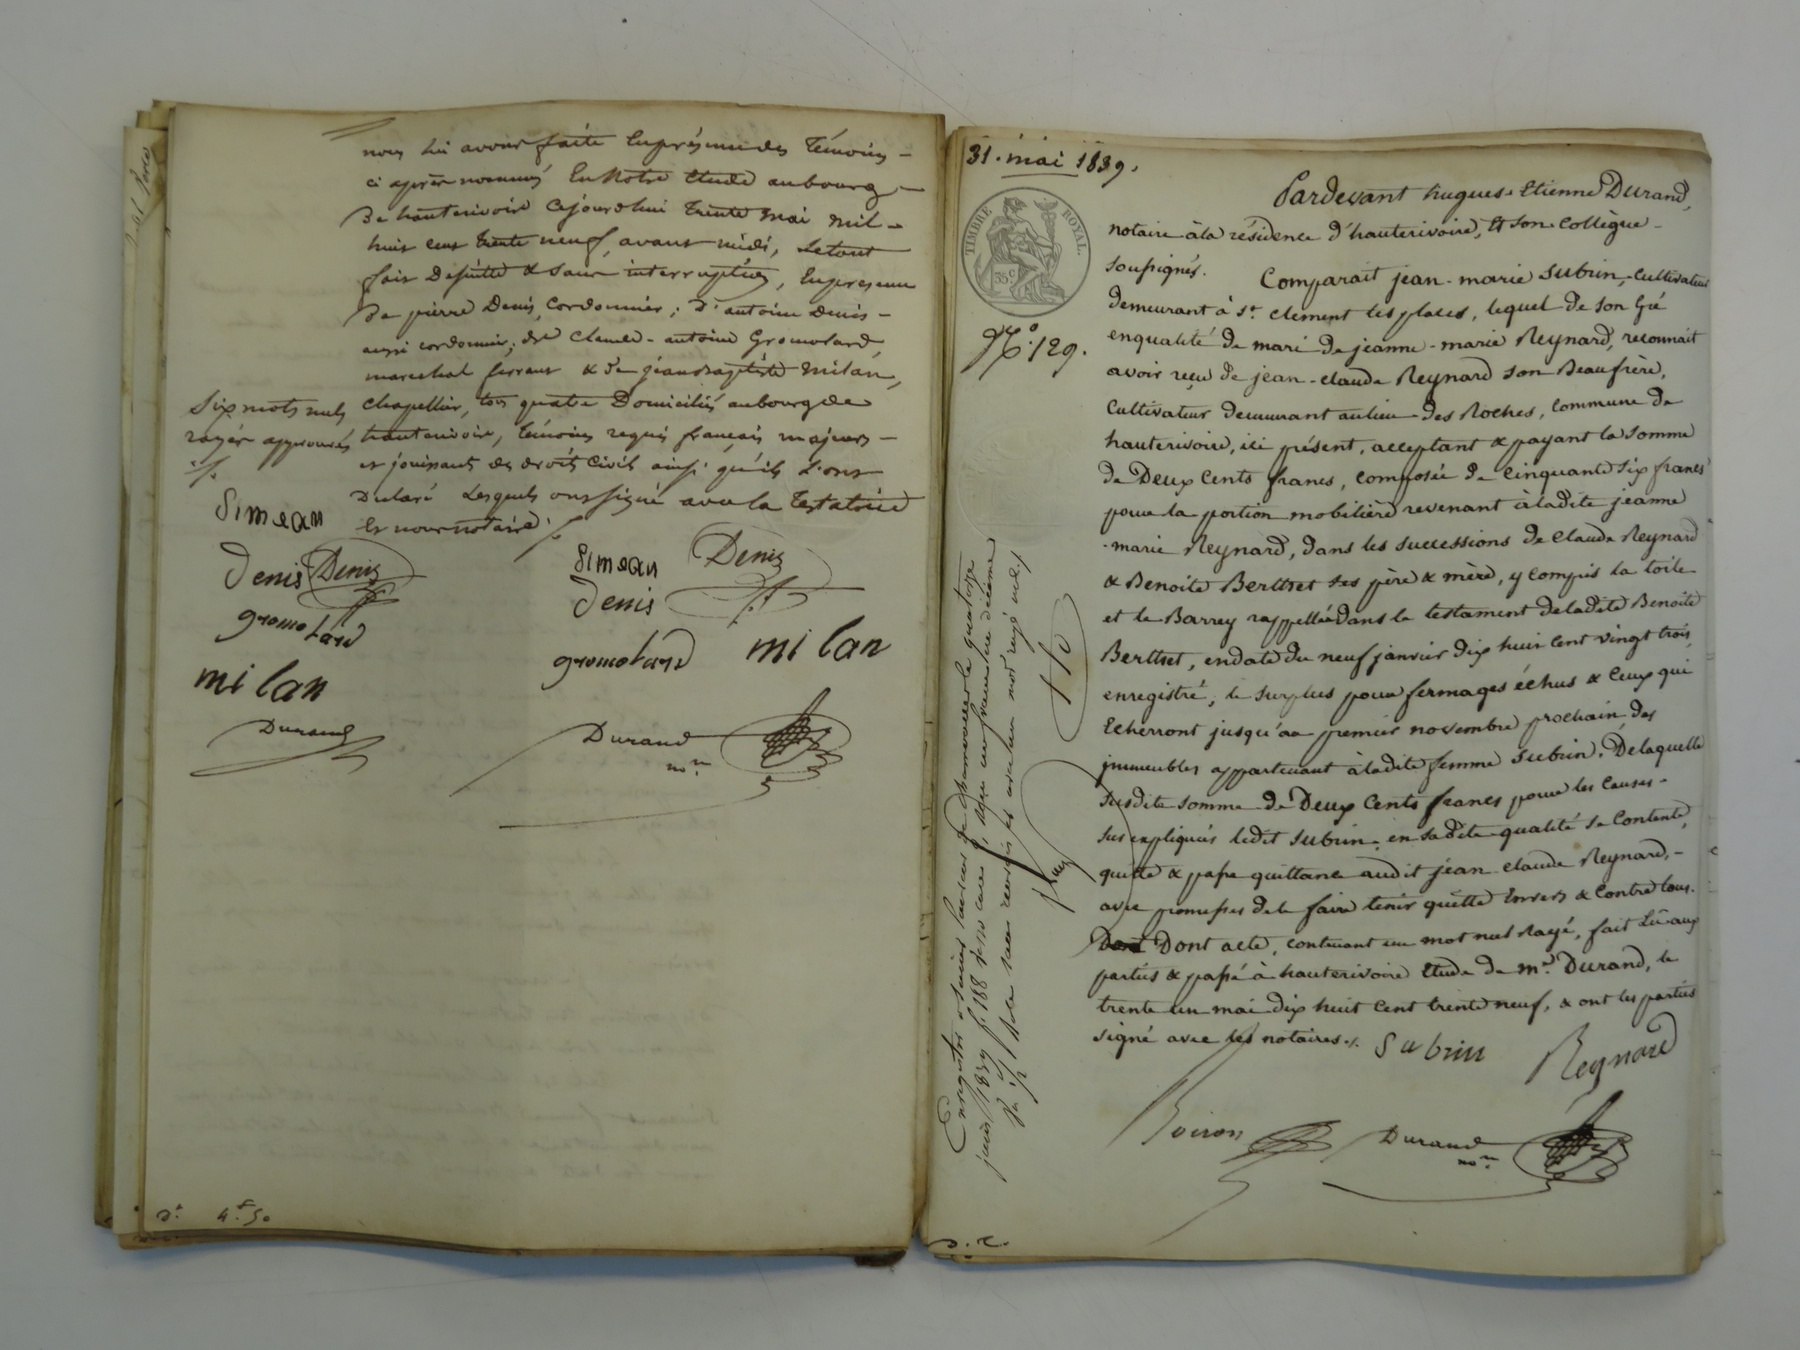 nous lui avons faite en présence des témoins -
ci après nommés En Notre Etude au bourg -
De hauterivoire cejourdhui trente mai mil -
huit cent trente neuf, avant midi, Letout
fait Desuitte & sans interruption, En presence
De pierre Denis, cordonnier; D'antoine Denis -
aussi cordonnier; de Claude - antoine Gromolard,
marechal ferrant & de jeanbaptiste milan,
chapellier, tous quatre Domiciliés au bourg de
hauterivoire, témoins requis français majeurs -
et jouissant des droits Civils ainsi qu'ils L'ont
Declaré Lesquels ont signé avec la testatrice
Et nous notaire ./.
Six mots nuls
rayés approuvés
./.
Simean
Denis Denis
gromolard
milan
Durand
Simean Denis
Denis
gromolard milan
Durand
nore
4f.50
31. mai 1839.
TIMBRE ROYAL
35c
No. 129.
Pardevant hugues-Etienne Durand,
notaire àla résidence d'hauterivoire, & son Collègue -
soussignés. Comparait jean-marie Subrin, cultivateur
demeurant à St. clément les places, lequel de son Gré
enqualité de mari de jeanne-marie Reynard, reconnait
avoir reçu de jean-claude Reynard son Beaufrère,
Cultivateur demeurant aulieu des Roches, commune de
hauterivoire, ici présent, acceptant & payant la somme
de Deux Cents francs, composée de Cinquante six francs
pour la portion mobilière revenant àladite jeanne
-marie Reynard, dans les successions de Claude Reynard
& Benoite Berthet ses père & mère, y compris la toile
et le Barrey rappellée dans le testament deladite Benoite
Berthet, endate du neuf janvier dix huit cent vingt trois,
enregistré, le surplus pour fermages échus & Ceux qui
Echerront jusqu'au premier novembre prochain, des
immeubles appartenant àladite femme Subrin. De laquelle
susdite somme de Deux Cents francs pour les Causes -
sus expliquées ledit Subrin, en sadite qualité se Contente,
quitte & passe quittance audit jean-claude Reynard, -
avec promesses de le faire tenir quitte Envers & Contre tous.
Dont Dont acte, contenant un mot nul Rayé, fait Lu aux
parties & passé à hauterivoire Etude de me. Durand, le
trente un mai dix huit Cent trente neuf, & ont les parties
signé avec les notaires ./. Subrin
Reynard
Boiron Durand
nore
Enregistré à Saint Laurent de Chamousset le quatorze
juin 1839 f. 188 Vo